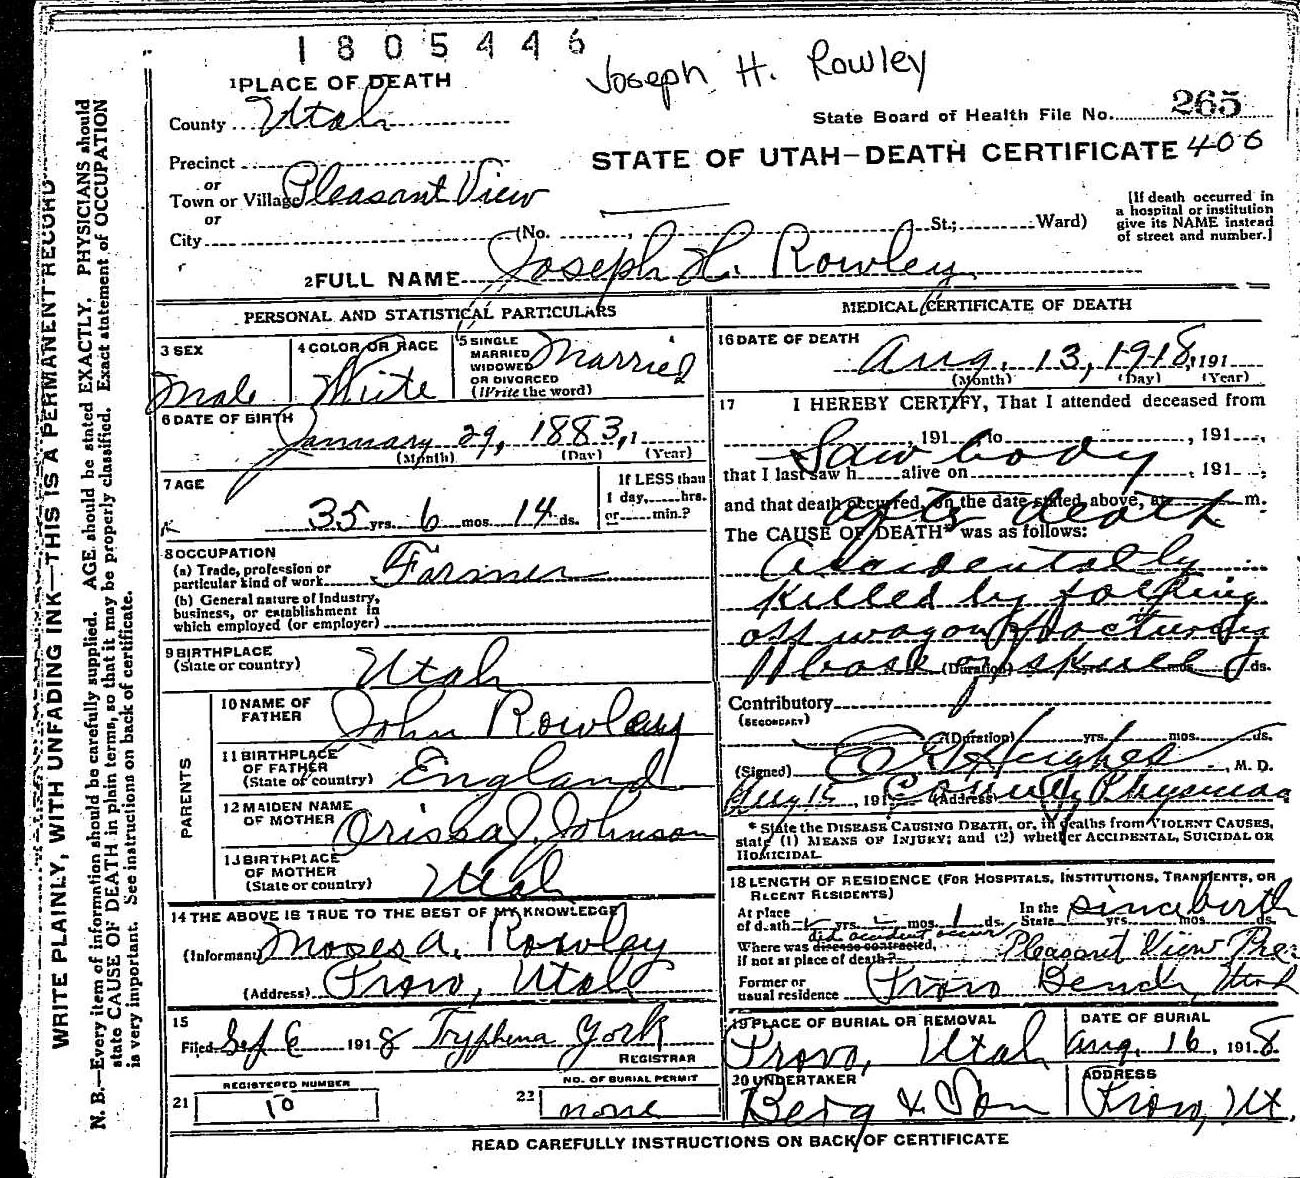 1805446
Joseph H. Rowley
1 PLACE OF DEATH
County Utah
State Board of Health File No. 265
406
STATE OF UTAH—DEATH CERTIFICATE
Precinct
or
Town or Village Pleasant View
or
City (No. , St.; Ward)
[If death occurred in
a hospital or institution
give its NAME instead
of street and number.]
2 FULL NAME Joseph H. Rowley
PERSONAL AND STATISTICAL PARTICULARS
3 SEX
Male
4 COLOR OR RACE
White
5 SINGLE
MARRIED
WIDOWED
OR DIVORCED
(Write the word)
Married
6 DATE OF BIRTH
January 29, 1883, 1
(Month) (Day) (Year)
7 AGE
35 yrs. 6 mos. 14 ds.
If LESS than
1 day, hrs.
or min.?
8 OCCUPATION
(a) Trade, profession or
particular kind of work Farmer
(b) General nature of Industry,
business, or establishment in
which employed (or employer)
9 BIRTHPLACE
(State or country) Utah
PARENTS
10 NAME OF
FATHER John Rowley
11 BIRTHPLACE
OF FATHER
(State or country) England
12 MAIDEN NAME
OF MOTHER Orissa J. Johnson
13 BIRTHPLACE
OF MOTHER
(State or country) Utah
14 THE ABOVE IS TRUE TO THE BEST OF MY KNOWLEDGE
(Informant) Moses A. Rowley
(Address) Provo, Utah
15
Filed Sep 6 1918 Tryphena York
REGISTRAR
21 REGISTERED NUMBER
10
22 NO. OF BURIAL PERMIT
none
MEDICAL CERTIFICATE OF DEATH
16 DATE OF DEATH
Aug. 13, 1918, 191
(Month) (Day) (Year)
17 I HEREBY CERTIFY, That I attended deceased from
, 191 to , 191 ,
Saw body
that I last saw h alive on , 191 ,
and that death occurred, on the date stated above, at m.
after death
The CAUSE OF DEATH* was as follows:
Accidentally
killed by falling
off wagon fracturing
base of skull
(Duration) yrs. mos. ds.
Contributory
(SECONDARY)
(Duration) yrs. mos. ds.
(Signed) Hughes, M. D.
Aug 15, 191 (Address) County Physician
* State the DISEASE CAUSING DEATH, or, in deaths from VIOLENT CAUSES,
state (1) MEANS OF INJURY; and (2) whether ACCIDENTAL, SUICIDAL OR
HOMICIDAL.
18 LENGTH OF RESIDENCE (FOR HOSPITALS, INSTITUTIONS, TRANSIENTS, OR
RECENT RESIDENTS)
At place
of death yrs. mos. 1 ds. In the
State since birth yrs. mos. ds.
did accident occur
Where was disease contracted,
if not at place of death? Pleasant View Pre
Former or
usual residence Provo Bench, Utah
19 PLACE OF BURIAL OR REMOVAL
Provo, Utah
DATE OF BURIAL
Aug. 16, 1918
20 UNDERTAKER
Berg & Son
ADDRESS
Provo, Ut.
READ CAREFULLY INSTRUCTIONS ON BACK OF CERTIFICATE
WRITE PLAINLY, WITH UNFADING INK—THIS IS A PERMANENT RECORD
N. B.—Every item of information should be carefully supplied. AGE should be stated EXACTLY. PHYSICIANS should
state CAUSE OF DEATH in plain terms, so that it may be properly classified. Exact statement of OCCUPATION
is very important. See instructions on back of certificate.